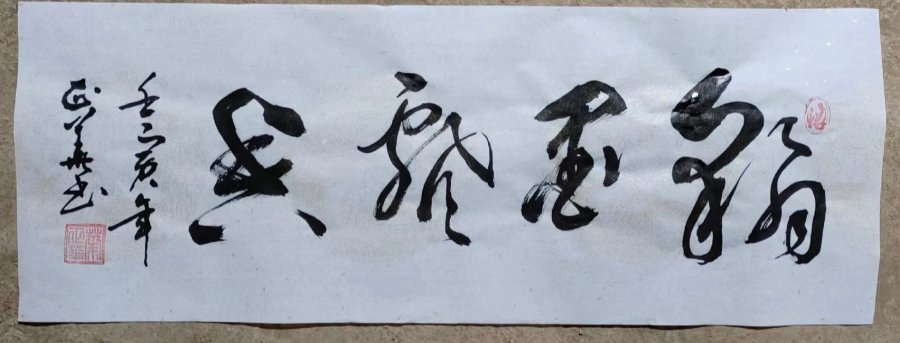 翰墨飘香
壬寅年
书